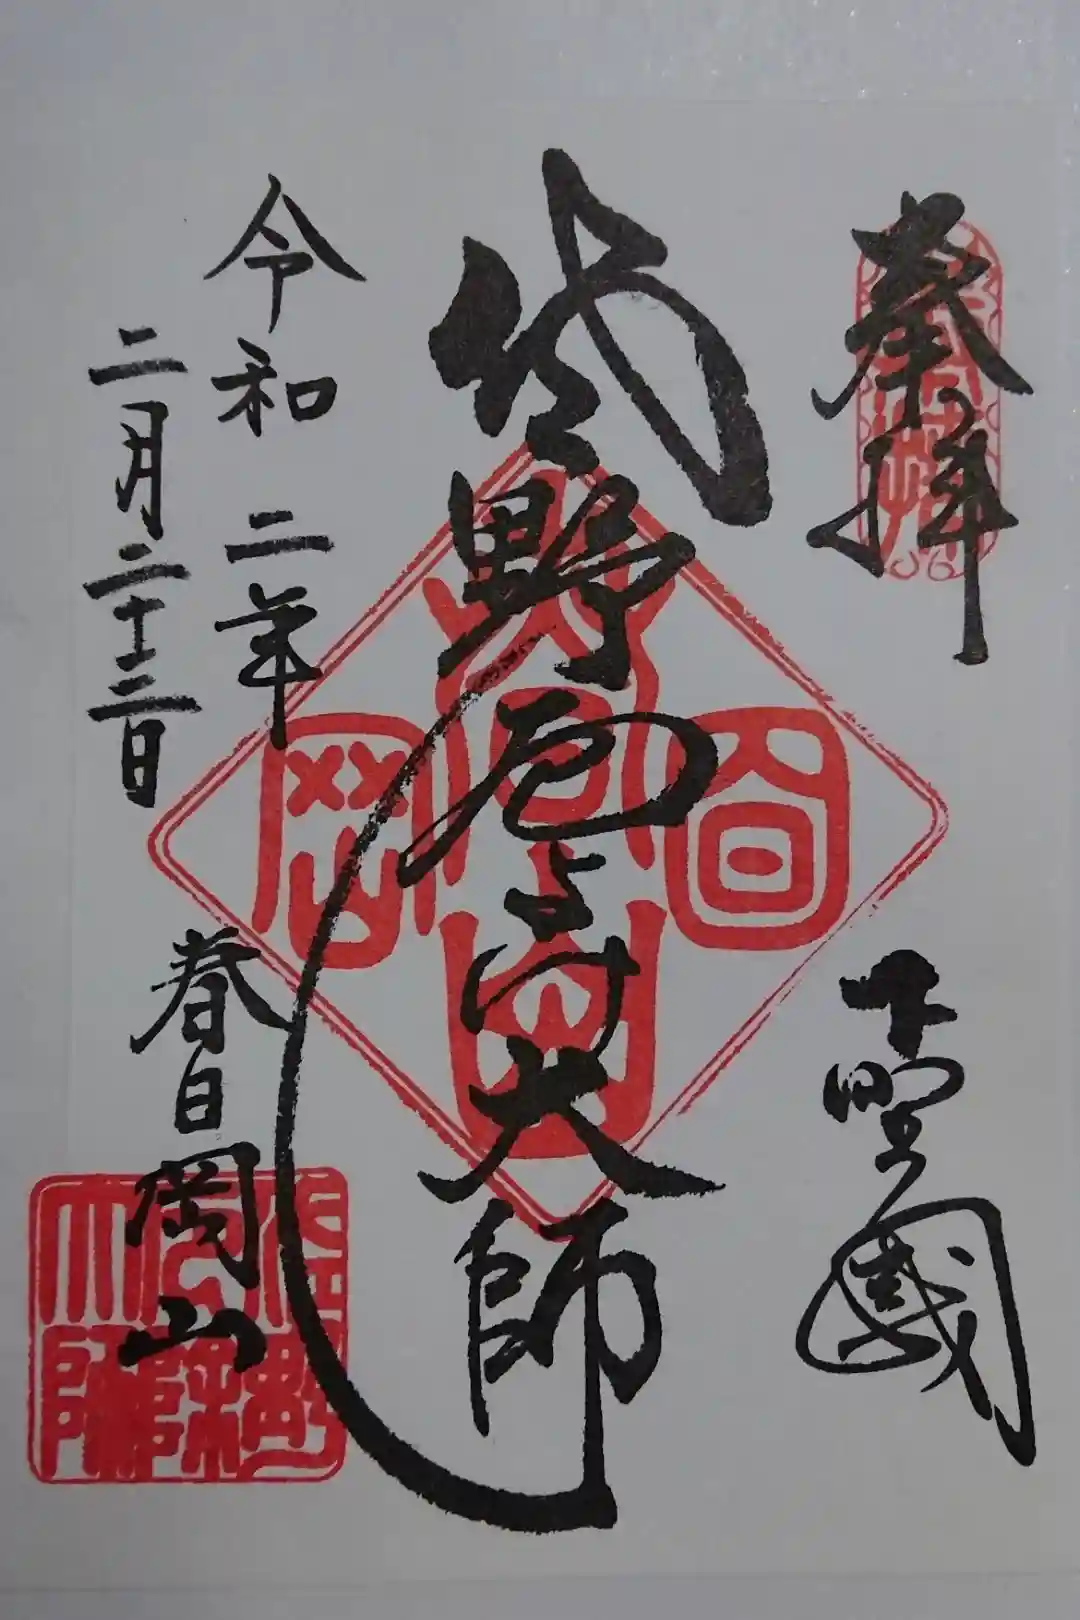 奉拝
下野國
佐野厄よけ大師
令和二年
二月二十三日
春日岡山
佐野厄除大師